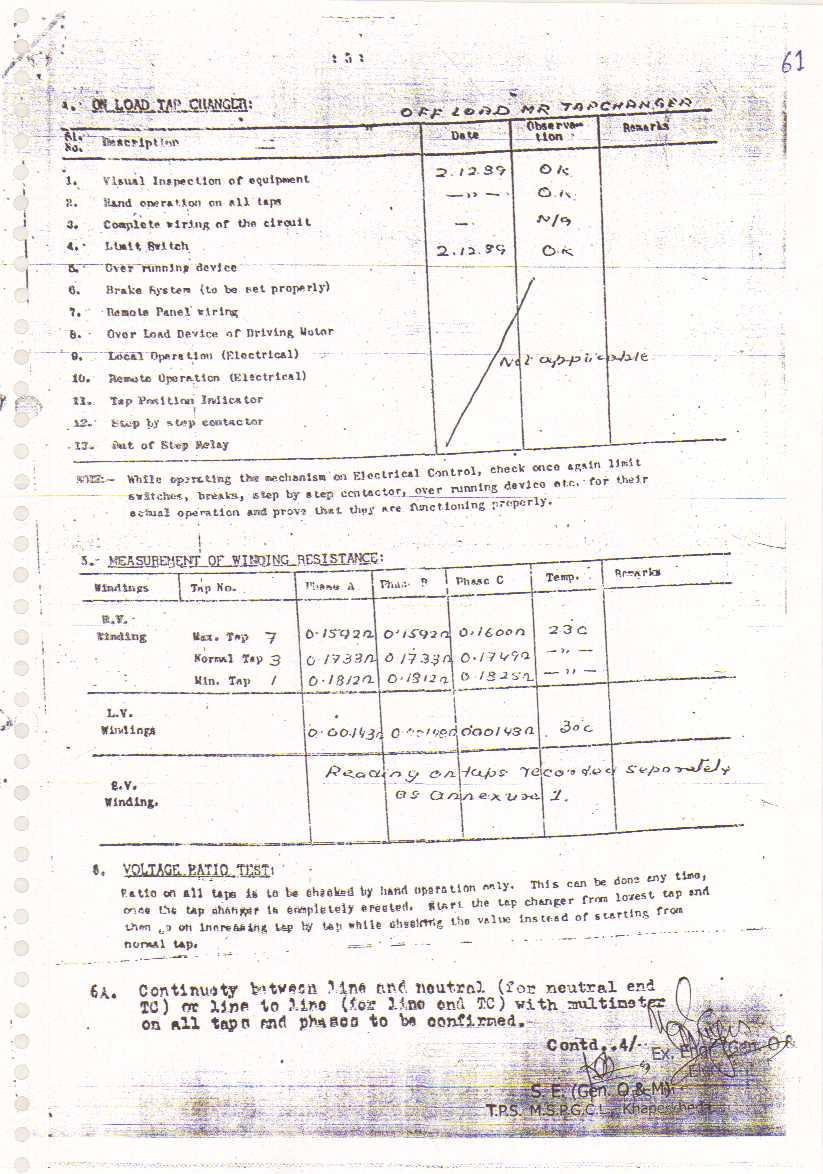 : 5 :
61
4. ON LOAD TAP CHANGER: OFF LOAD MR TAPCHANGER
Sl. No. Description Date Observa-tion Remarks
1. Visual Inspection of equipment 2.12.89 OK
2. Hand operation on all taps —"— O.K
3. Complete wiring of the circuit — N/A
4. Limit Switch 2.12.89 O.K
5. Over running device
6. Brake System (to be set properly)
7. Remote Panel wiring
8. Over Load Device of Driving Motor
9. Local Operation (Electrical) Not applicable
10. Remote Operation (Electrical)
11. Tap Position Indicator
12. Step by step contactor
13. Out of Step Relay
NOTE:- While operating the mechanism on Electrical Control, check once again limit
switches, breaks, step by step contactor, over running device etc. for their
actual operation and prove that they are functioning properly.
5. MEASUREMENT OF WINDING RESISTANCE:
Windings Tap No. Phase A Phase B Phase C Temp. Remarks
H.V.
Winding Max. Tap 7 0.1592Ω 0.1592Ω 0.1600Ω 23C
Normal Tap 3 0.1733Ω 0.1733Ω 0.1749Ω —"—
Min. Tap 1 0.1812Ω 0.1812Ω 0.1825Ω —"—
L.V.
Windings 0.00143Ω 0.00143Ω 30C
Reading on taps recorded seperately
S.V.
Winding. as annexure 1.
6. VOLTAGE RATIO TEST:
Ratio on all taps is to be checked by hand operation only. This can be done any time,
once the tap changer is completely erected. Start the tap changer from lowest tap and
then go on increasing tap by tap while checking the value instead of starting from
normal tap.
6A. Continuety between line and neutral (for neutral end
TC) or line to line (for line end TC) with multimeter
on all taps and phases to be confirmed.
Contd..4/-
Ex. Engr. (Gen. O &
S. E. (Gen. O & M)
T.P.S. M.S.P.G.C.L., Khaperkheda